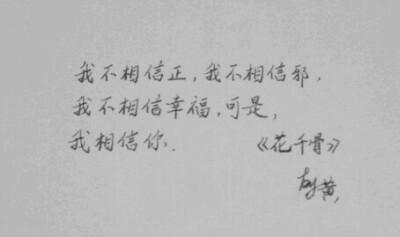 我不相信正,我不相信邪.
我不相信幸福,可是,
我相信你.
《花千骨》